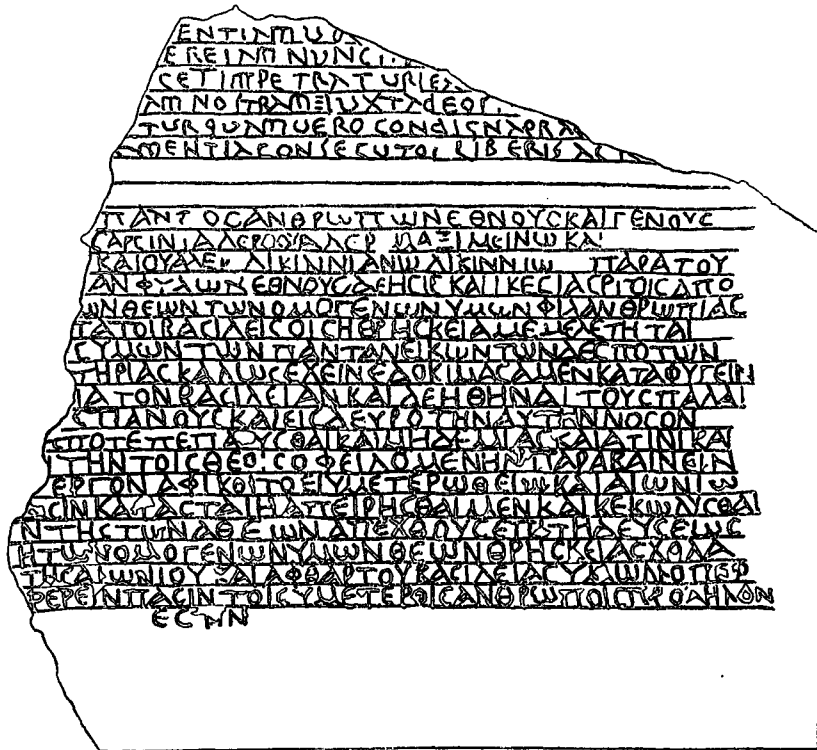 ENTIAMUO
EREIAM NUNC
CETIMPETRATURIEX
AMNOSTRAMEIUXTADEOS
TURQUAMUEROCONDIGNAPRA
AMENTIACONSECUTOILIBERISAC
ΠΑΝΤΟCΑΝΘΡΩΠΩΝΕΘΝΟΥCΚΑΙΓΕΝΟΥC
CΑΡCΙΝ ΜΑΞΙΜΕΙΝΩ ΚΑΙ
ΚΑΙΟΥΑΛΕΡ ΛΙΚΙΝΝΙΑΝΩΛΙΚΙΝΝΙΩ ΠΑΡΑΤΟΥ
ΑΜΦΥΛΩΝΕΘΝΟΥCΔΕΗCΙCΚΑΙΙΚΕCΙΑ
ΩΝΘΕΩΝΤΩΝΟΜΟΓΕΝΩΝΥΜΩΝΦΙΛΑΝΘΡΩΠΙΑC
ΤΑΤΟΙΒΑCΙΛΕΙCΟΙCΗΘΡΗCΚΕΙΑΜΕΜΕΛΕΤΗΤΑΙ
CΥΜΩΝΤΩΝΠΑΝΤΑΝΕΙΚΩΝΤΩΝΔΕCΠΟΤΩΝ
ΤΗΡΙΑCΚΑΛΩCΕΧΕΙΝΕΔΟΚΙΜΑCΑΜΕΝΚΑΤΑΦΥΓΕΙΝ
ΙΑΤΟΝΒΑCΙΛΕΙΑΝΚΑΙΔΕΗΘΗΝΑΙΤΟΥCΠΑΛΑΙ
CΤΙΑΝΟΥCΚΑΙΕΙCΔΕΥΡΟΤΗΝΑΥΤΗΝΝΟCΟΝ
CΠΟΤΕΠΕΠΑΥCΘΑΙΚΑΙΜΗΔΕΜΙΑCΚΑΙΑΤΙΝΙΚΑ
ΤΗΝΤΟΙCΘΕΟΙCΟΦΕΙΛΟΜΕΝΗΝΠΑΡΑΒΑΙΝΕΙΝ
ΕΡΓΟΝΑΦΙΚΟΙΤΟΕΙΥΜΕΤΕΡΩΘΕΙΩΚΑΙΑΙΩΝΙΩ
ΑCΙΝΚΑΤΑCΤΑΙΗΑΠΕΙΡΗCΘΑΙΜΕΝΚΑΙΚΕΚΩΛΥCΘΑΙ
ΝΤΗCΤΩΝΑΘΕΩΝΑΠΕΧΘΟΥCΕΠΙΤΗΔΕΥCΕΩC
ΗΤΩΝΟΜΟΓΕΝΩΝΥΜΩΝΘΕΩΝΘΡΗCΚΕΙΑCΧΟΛΑ
ΤΗCΑΙΩΝΙΟΥΚΑΙΑΦΘΑΡΤΟΥΒΑCΙΛΕΙΑCΥΜΩΝΟΠΕΡ
ΦΕΡΕΙΝΠΑCΙΝΤΟΙCΥΜΕΤΕΡΟΙCΑΝΘΡΩΠΟΙCΠΡΟΔΗΛΟΝ
ΕCΤΙΝ